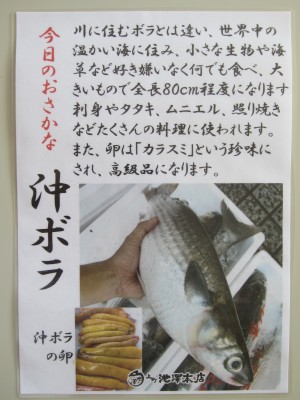 今日のおさかな
沖ボラ
川に住むボラとは違い、世界中の
温かい海に住み、小さな生物や海
草など好き嫌いなく何でも食べ、大
きいもので全長80cm程度になります
刺身やタタキ、ムニエル、照り焼き
などたくさんの料理に使われます。
また、卵は「カラスミ」という珍味に
され、高級品になります。
沖ボラ
の卵
池澤本店